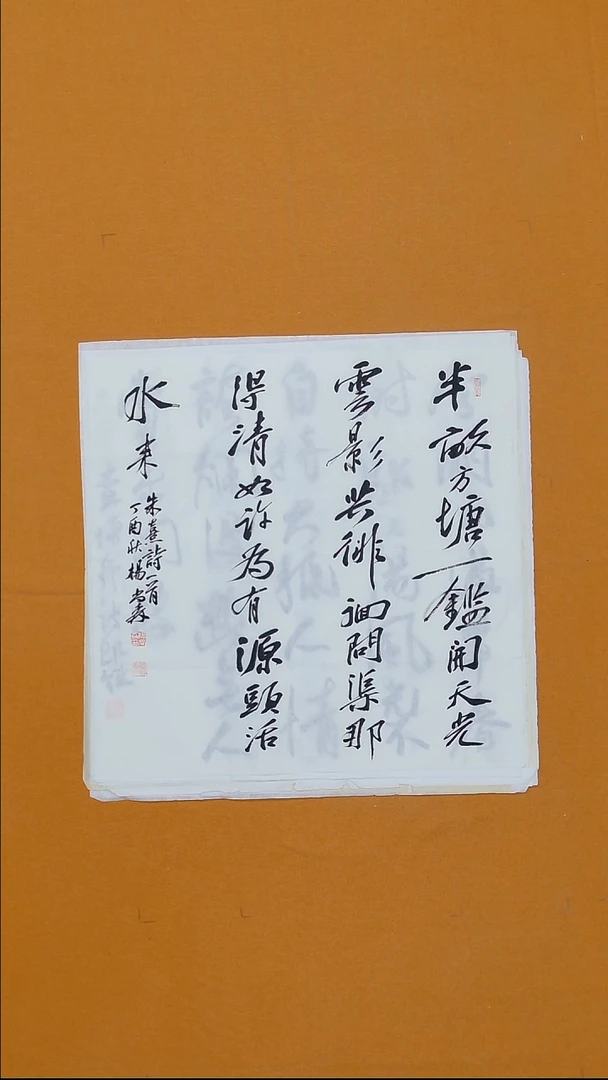 半畝方塘一鑑開天光
雲影共徘徊問渠那
得清如許為有源頭活
水来
朱熹詩一首
丁酉秋楊